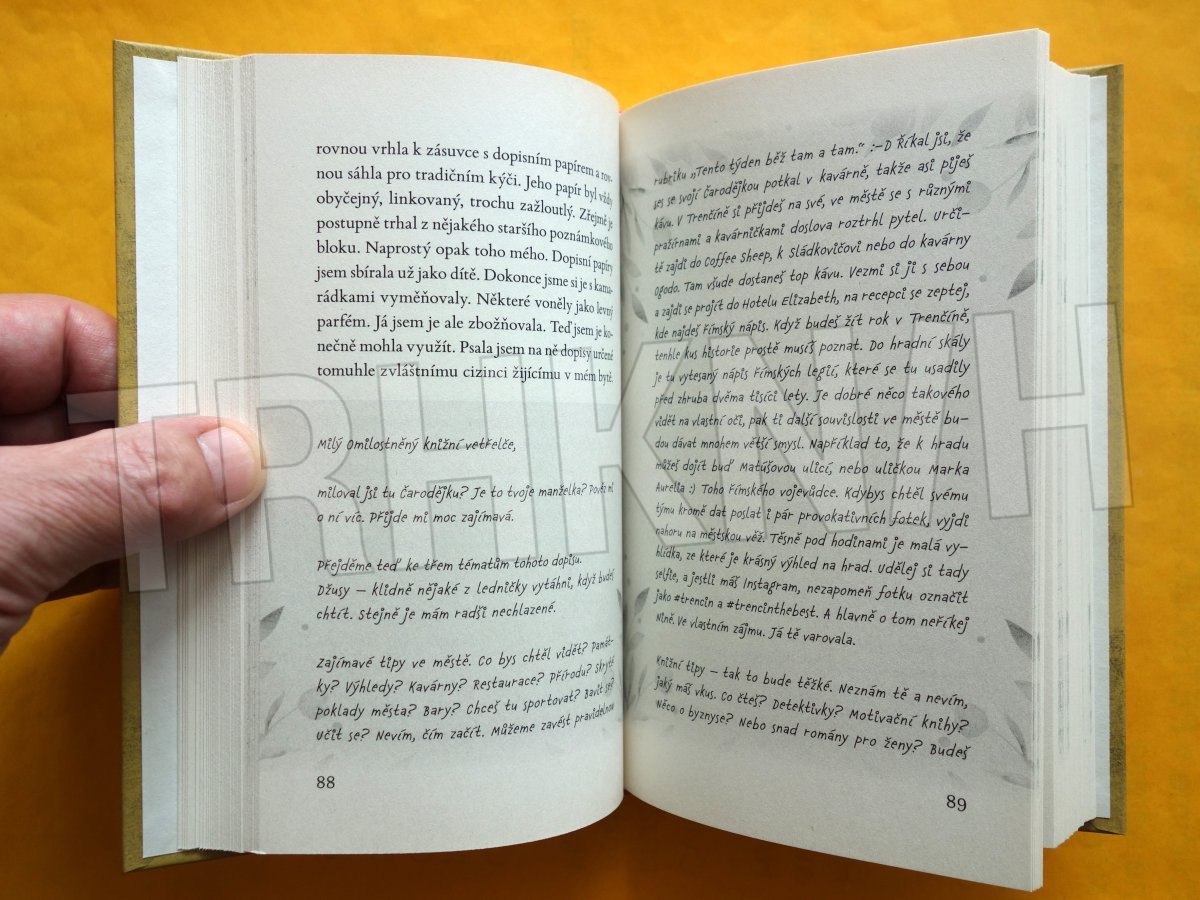 rovnou vrhla k zásuvce s dopisním papírem a rov-
nou sáhla pro tradičním kýči. Jeho papír byl vždy
obyčejný, linkovaný, trochu zažloutlý. Zřejmě je
postupně trhal z nějakého staršího poznámkového
bloku. Naprostý opak toho mého. Dopisní papíry
jsem sbírala už jako dítě. Dokonce jsme si je s kama-
rádkami vyměňovaly. Některé voněly jako levný
parfém. Já jsem je ale zbožňovala. Teď jsem je ko-
nečně mohla využít. Psala jsem na ně dopisy určené
tomuhle zvláštnímu cizinci žijícímu v mém bytě.
Milý Omilostněný knižní vetřelče,
miloval jsi tu Čarodějku? Je to tvoje manželka? Pověz mi
o ní víc. Přijde mi moc zajímavá.
Přejděme teď ke třem tématům tohoto dopisu.
Džusy – klidně nějaké z ledničky vytáhni, když budeš
chtít. Stejně je mám radši nechlazené.
Zajímavé tipy ve městě. Co bys chtěl vidět? Památ-
ky? Výhledy? Kavárny? Restaurace? Přírodu? Skryté
poklady města? Bary? Chceš tu sportovat? Bavit se?
Učit se? Nevím, čím začít. Můžeme zavést pravidelnou
88
rubriku „Tento týden běž tam a tam.“ :-D Říkal jsi, že
ses se svojí Čarodějkou potkal v kavárně, takže asi piješ
kávu. V Trenčíně si přijdeš na své, ve městě se s různými
pražírnami a kavárničkami doslova roztrhl pytel. Urči-
tě zajdi do Coffee Sheep, k Sládkovičovi nebo do kavárny
Ogodo. Tam všude dostaneš top kávu. Vezmi si ji s sebou
a zajdi se projít do Hotelu Elizabeth, na recepci se zeptej,
kde najdeš Římský nápis. Když budeš žít rok v Trenčíně,
tenhle kus historie prostě musíš poznat. Do hradní skály
je tu vytesaný nápis Římských legií, které se tu usadily
před zhruba dvěma tisíci lety. Je dobré něco takového
vidět na vlastní oči, pak ti další souvislosti ve městě bu-
dou dávat mnohem větší smysl. Například to, že k hradu
můžeš dojít buď Matúšovou ulicí, nebo uličkou Marka
Aurelia :) Toho Římského vojevůdce. Kdybys chtěl svému
týmu kromě dat poslat i pár provokativních fotek, vyjdi
nahoru na městskou věž. Těsně pod hodinami je malá vy-
hlídka, ze které je krásný výhled na hrad. Udělej si tady
selfie, a jestli máš Instagram, nezapomeň fotku označit
jako #trencin a #trencinthebest. A hlavně o tom neříkej
Nině. Ve vlastním zájmu. Já tě varovala.
Knižní tipy – tak to bude těžké. Neznám tě a nevím,
jaký máš vkus. Co čteš? Detektivky? Motivační knihy?
Něco o byznyse? Nebo snad romány pro ženy? Budeš
89
TRHKNIH